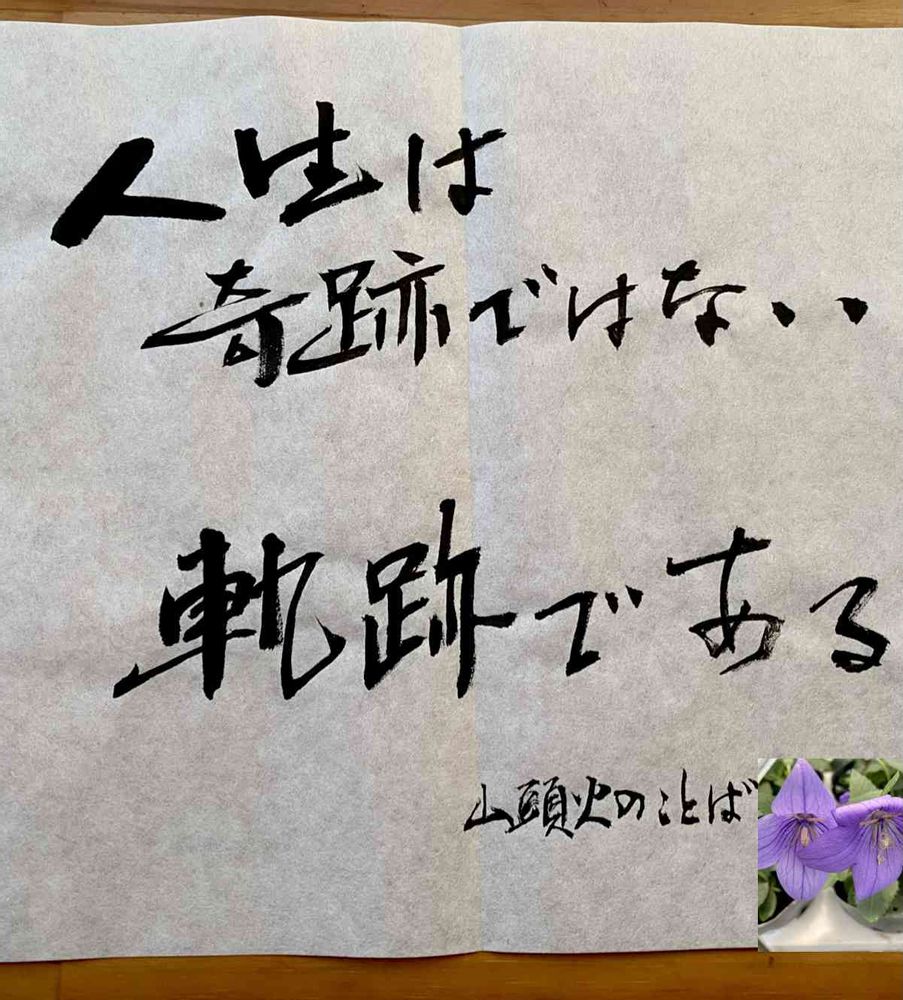 人生は
奇跡ではない
軌跡である
山頭火のことば